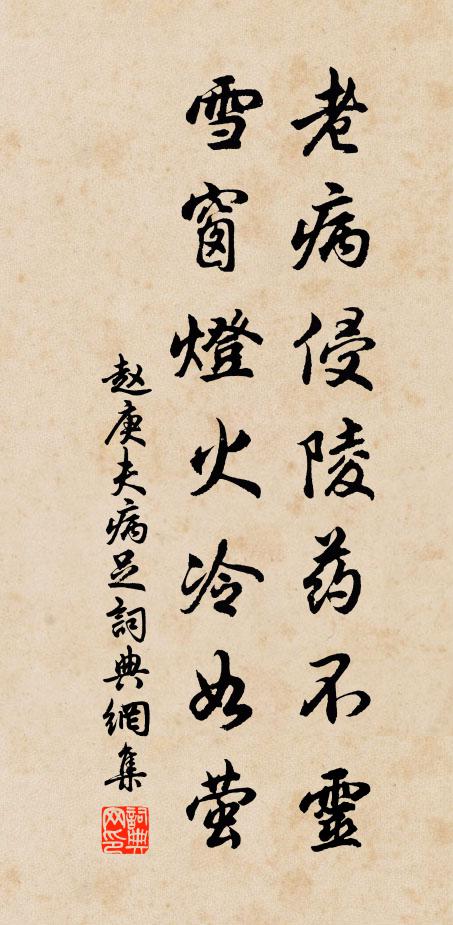 老病侵陵药不靈
雪窗燈火冷如萤
赵庚夫病足詞典網集
詞典网印